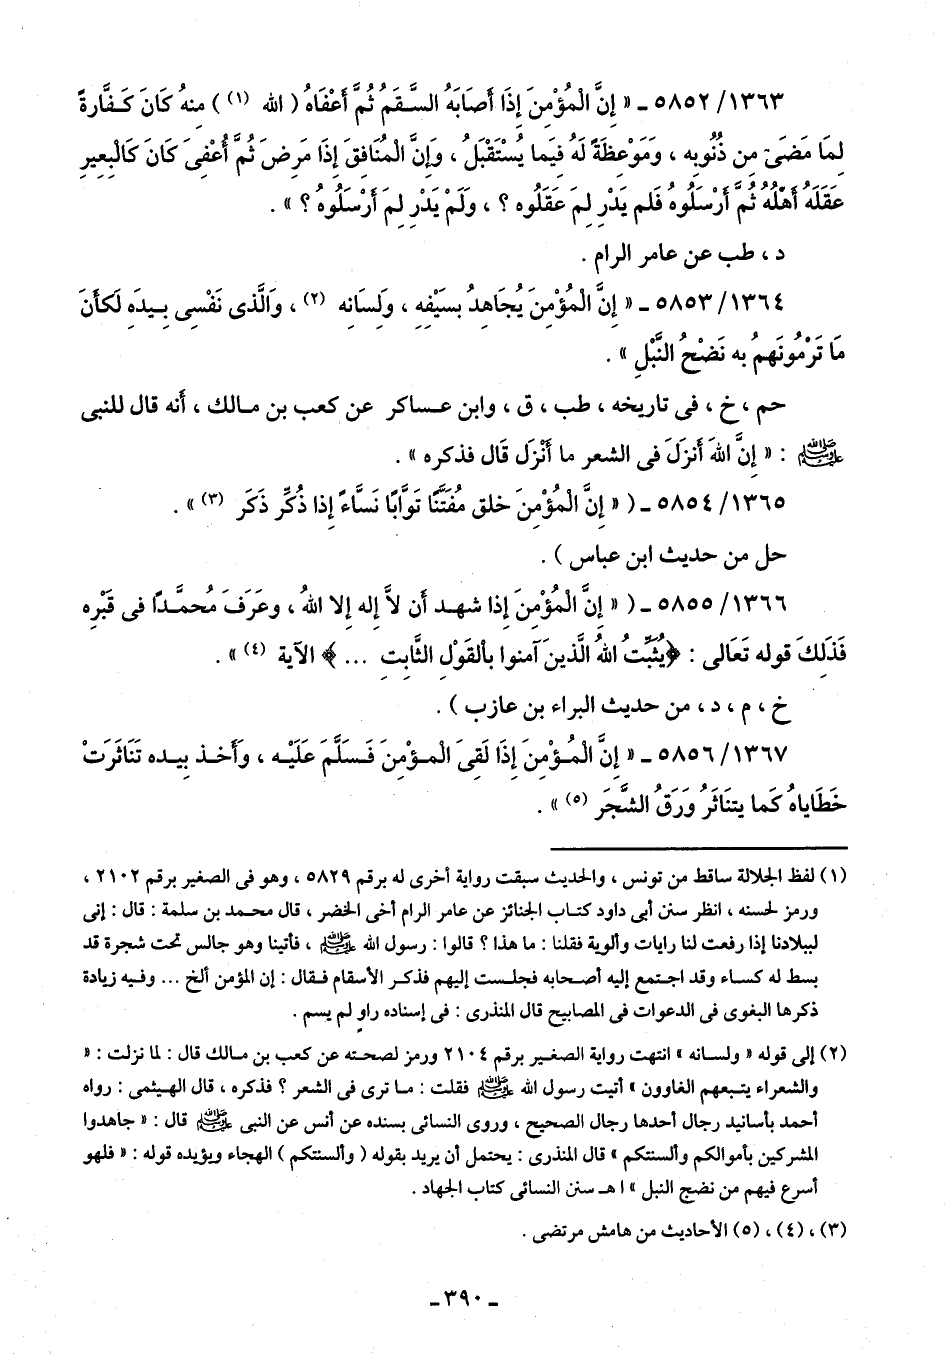 ١٣٦٣/ ٥٨٥٢ ـ « إِنَّ الْمُؤْمِنَ إِذَا أَصَابَهُ السَّقَمُ ثُمَّ أَعْفَاهُ ( الله (١) ) مِنهُ كَانَ كَـفَّارةً
لِمَا مَضَىٰ مِن ذُنُوبِه ، وَمَوْعِظَةً لَهُ فِيمَا يُسْتَقْبَلُ ، وَإِنَّ الْمُنَافِقَ إِذَا مَرِضَ ثُمَّ أُعْفِىَ كَانَ كَالْبَعِيرِ
عَقَلَهُ أَهْلُهُ ثُمَّ أَرْسَلُوهُ فَلم يَدْرِ لِمَ عَقَلُوه ؟ ، وَلَمْ يَدْرِ لِمَ أَرْسَلُوهُ ؟ » .
د ، طب عن عامر الرام .
١٣٦٤/ ٥٨٥٣ ـ « إِنَّ الْمُؤْمِنَ يُجَاهِدُ بِسَيْفِهِ ، وَلِسَانِه (٢) ، وَالَّذى نَفْسِى بِـيـدَهِ لَكَأَنَ
مَا تَرْمُونَهِمُ به نَضْحُ النَّبْلِ » .
حم ، خ ، فى تاريخه ، طب ، ق ، وابن عـساكر عن كعب بن مـالك ، أنه قال للنبى
ﷺ : « إِنَّ اللهَ أَنزَلَ فى الشعر ما أَنْزَل قَال فذكره » .
١٣٦٥/ ٥٨٥٤ ـ ( « إِنَّ الْمُؤْمِنَ خلق مُفَتَّنًا تَوَّابًا نَسَّاءً إِذا ذُكِّر ذَكَرَ (٣) » .
حل من حديث ابن عباس ) .
١٣٦٦/ ٥٨٥٥ ـ ( « إِنَّ الْمُؤْمِنَ إِذَا شهـد أَن لاَّ إِله إلا اللهُ ، وعَرَفَ مُحمَّـدًا فى قَبْرِه
فَذَلِكَ قوله تَعَالى : ﴿يُثَبِّتُ اللهُ الَّذِين آمنوا بِالقَوْلِ الثَّابتِ ... ﴾ الآية (٤) » .
خ ، م ، د ، من حديث البراء بن عازب ) .
١٣٦٧/ ٥٨٥٦ ـ « إِنَّ الْمُـؤْمِنَ إِذَا لَقِىَ الْمـؤْمِنَ فَـسَلَّمَ عَلَيْـه ، وَأَخـذ بِيـده تَنَاثَرَتْ
خَطَاياهُ كَما يتنَاثَرُ وَرَقُ الشَّجَر (٥) » .
(١) لفظ الجلالة ساقط من تونس ، والحديث سبقت رواية أخرى له برقم ٥٨٢٩ ، وهو فى الصغير برقم ٢١٠٢ ،
ورمز لحسنه ، انظر سنن أبى داود كتاب الجنائز عن عامر الرام أخى الخضر ، قال محمد بن سلمة : قال : إنى
لببلادنا إذا رفعت لنا رايات وألوية فقلنا : ما هذا ؟ قالوا : رسول الله ﷺ ، فأتينا وهو جالس تحت شجرة قد
بسط له كساء وقد اجتمع إليه أصحابه فجلست إليهم فذكر الأسقام فـقال : إن المؤمن ألخ ... وفيه زيادة
ذكرها البغوى فى الدعوات فى المصابيح قال المنذرى : فى إسناده راوٍ لم يسم .
(٢) إلى قوله « ولسانه » انتهت رواية الصغير برقم ٢١٠٤ ورمز لصحته عن كعب بن مـالك قال : لما نزلت : «
والشعراء يتبعهم الغاوون » أتيت رسول الله ﷺ فقلت : ما ترى فى الشعر ؟ فذكره ، قال الهيثمى : رواه
أحمد بأسانيد رجال أحدها رجال الصحيح ، وروى النسائى بسنده عن أنس عن النبى ﷺ قال : « جاهدوا
المشركين بأموالكم وألسنتكم » قال المنذرى : يحتمل أن يريد بقوله ( وألسنتكم ) الهجاء ويؤيده قوله : « فلهو
أسرع فيهم من نضج النبل » ا هـ سنن النسائى كتاب الجهاد .
(٣) ، (٤) ، (٥) الأحاديث من هامش مرتضى .
ـ ٣٩٠ ـ